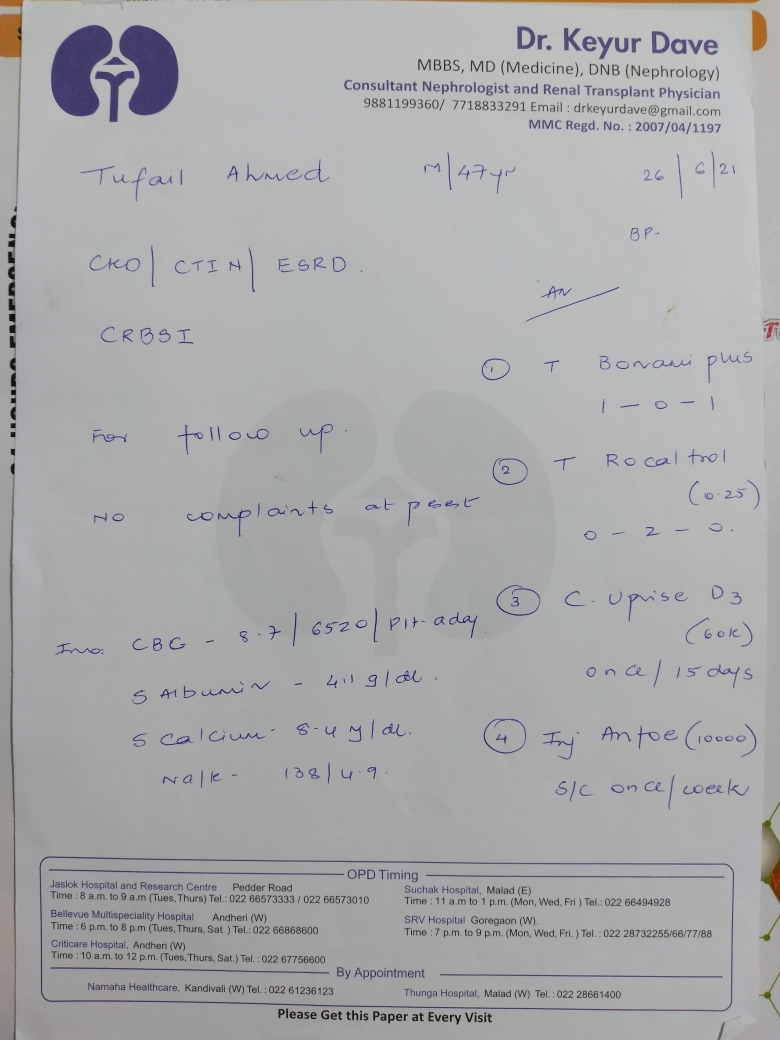 Dr. Keyur Dave
MBBS, MD (Medicine), DNB (Nephrology)
Consultant Nephrologist and Renal Transplant Physician
9881199360/ 7718833291 Email : drkeyurdave@gmail.com
MMC Regd. No. : 2007/04/1197
Tufail Ahmed M/47yr 26/6/21
BP-
CKD/ CTIN/ ESRD.
CRBSI
For follow up.
No complaints at pesest
Inv: CBC - 8.7/6520/Plt- aday
S Albumin - 4.1 g/dl.
S Calcium - 8.4 g/dl.
Na/K - 138/4.9.
Adv
1 T Bonami plus
1 - 0 - 1
2 T Rocaltrol
(0.25)
0 - 2 - 0.
3 C. Uprise D3
(60K)
once/15 days
4 Inj (10000)
S/C once/week
OPD Timing
Jaslok Hospital and Research Centre Pedder Road
Time : 8 a.m. to 9 a.m (Tues, Thurs) Tel.: 022 66573333 / 022 66573010
Bellevue Multispeciality Hospital Andheri (W)
Time : 6 p.m. to 8 p.m (Tues, Thurs, Sat. ) Tel.: 022 66868600
Criticare Hospital, Andheri (W)
Time : 10 a.m. to 12 p.m. (Tues, Thurs, Sat.) Tel. : 022 67756600
Suchak Hospital, Malad (E)
Time : 11 a.m to 1 p.m. (Mon, Wed, Fri ) Tel.: 022 66494928
SRV Hospital Goregaon (W).
Time : 7 p.m. to 9 p.m. (Mon, Wed, Fri. ) Tel. : 022 28732255/66/77/88
By Appointment
Namaha Healthcare, Kandivali (W) Tel. : 022 61236123
Thunga Hospital, Malad (W) Tel. : 022 28661400
Please Get this Paper at Every Visit